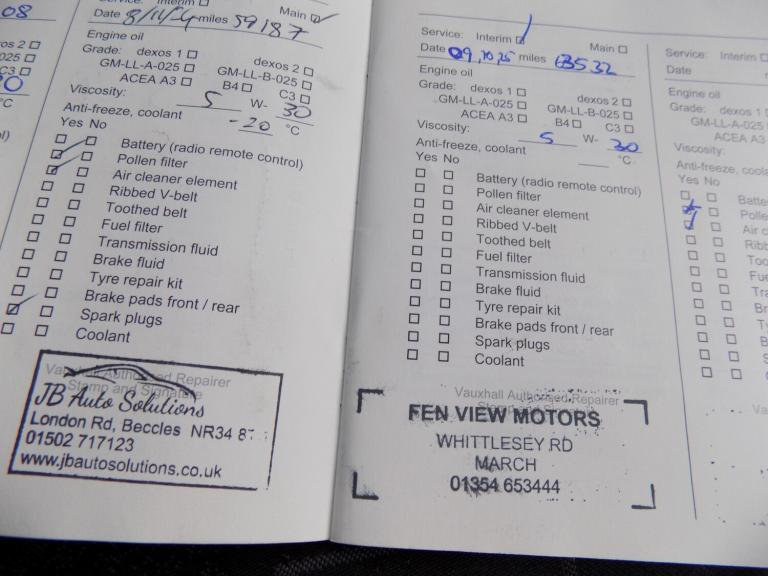 08
Service: Interim Main
Date 8/11/24 miles 59187
Engine oil
Grade: dexos 1 dexos 2
GM-LL-A-025 GM-LL-B-025
ACEA A3 B4 C3
Viscosity: 5 W- 30
Anti-freeze, coolant -20 °C
Yes No
Battery (radio remote control)
Pollen filter
Air cleaner element
Ribbed V-belt
Toothed belt
Fuel filter
Transmission fluid
Brake fluid
Tyre repair kit
Brake pads front / rear
Spark plugs
Coolant
Vauxhall Authorised Repairer
Stamp and Signature
JB Auto Solutions
London Rd, Beccles NR34
01502 717123
www.jbautosolutions.co.uk
Service: Interim Main
Date 09,10,25 miles 63532
Engine oil
Grade: dexos 1 dexos 2
GM-LL-A-025 GM-LL-B-025
ACEA A3 B4 C3
Viscosity: 5 W- 30
Anti-freeze, coolant °C
Yes No
Battery (radio remote control)
Pollen filter
Air cleaner element
Ribbed V-belt
Toothed belt
Fuel filter
Transmission fluid
Brake fluid
Tyre repair kit
Brake pads front / rear
Spark plugs
Coolant
Vauxhall Authorised Repairer
FEN VIEW MOTORS
WHITTLESEY RD
MARCH
01354 653444
Service: Interim
Date
Engine oil
Grade: dexos 1
GM-LL-A-025
ACEA A3
Viscosity:
Anti-freeze, coola
Yes No